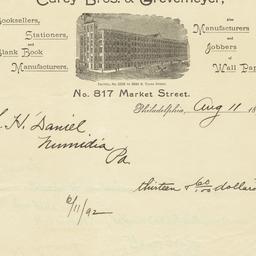 Curey Bros. & Grevemeyer,
Booksellers,
Stationers,
and
Blank Book
Manufacturers.
Also
Manufacturers
and
Jobbers
of
Wall Pap
No. 817 Market Street.
Philadelphia, Aug 11 18
H. Daniel
Numidia
Pa
thirteen & 60/100 dollars
6/11/92